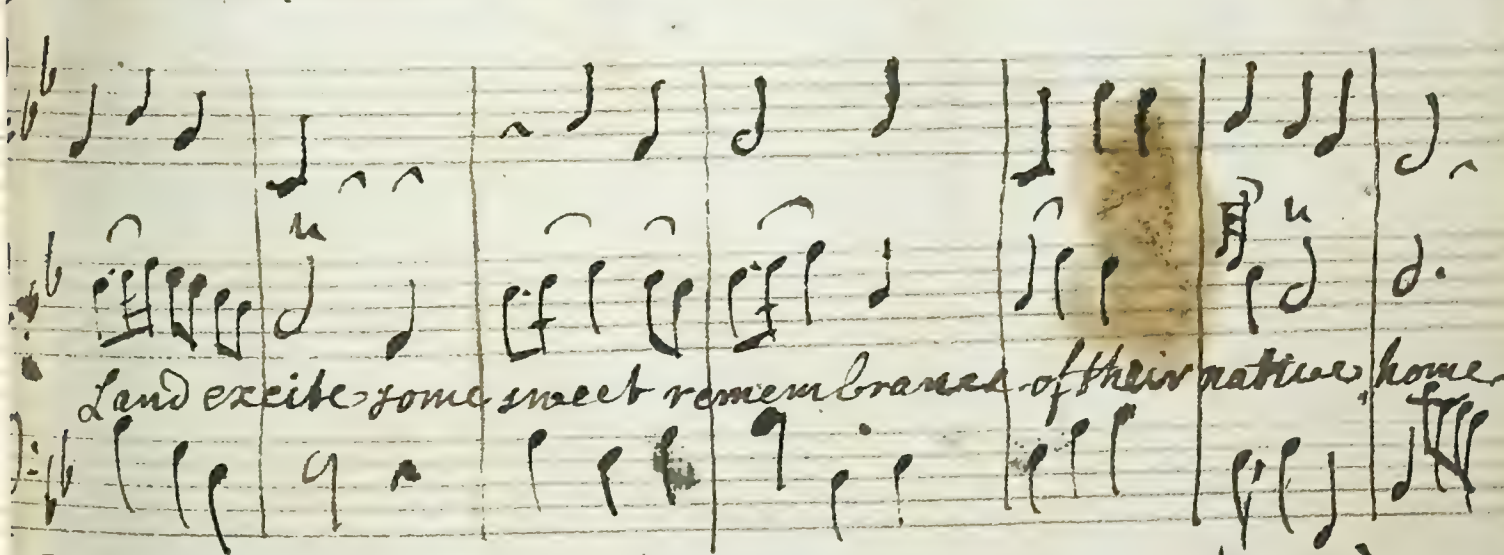 Land excite some sweet remembrance of their native home